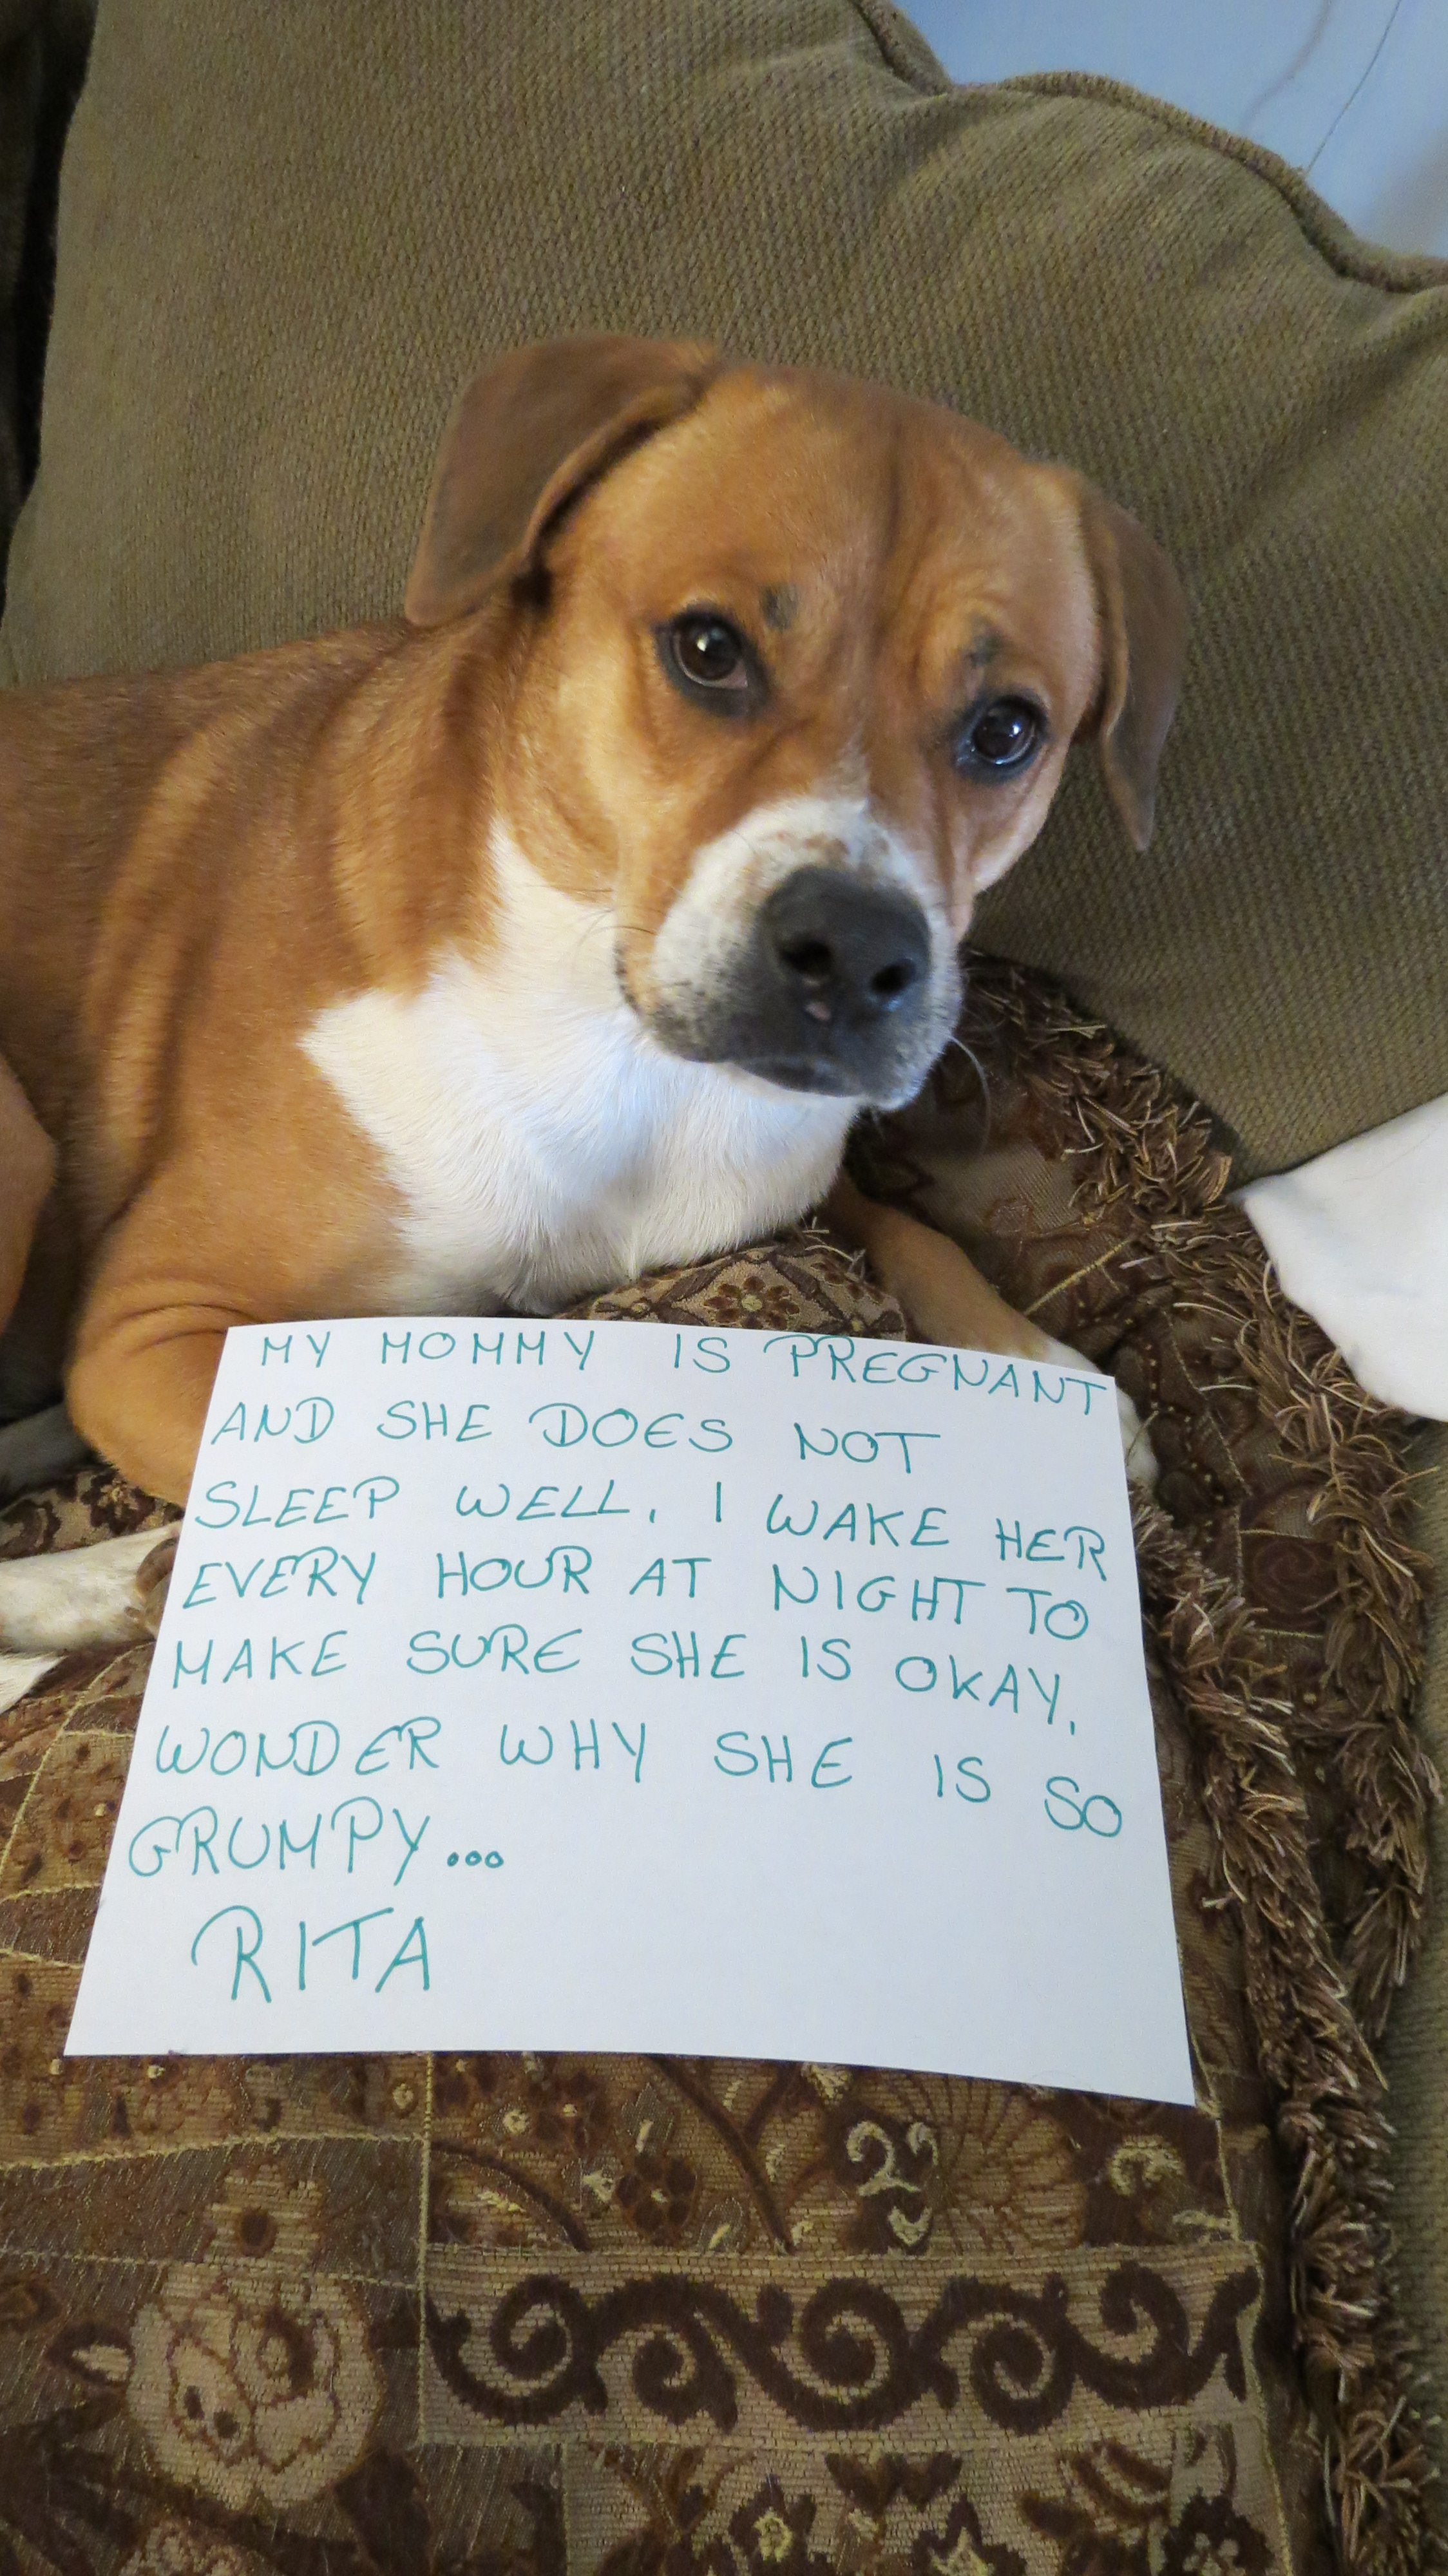 MY MOMMY IS PREGNANT
AND SHE DOES NOT
SLEEP WELL. I WAKE HER
EVERY HOUR AT NIGHT TO
MAKE SURE SHE IS OKAY.
WONDER WHY SHE IS SO
GRUMPY...
RITA